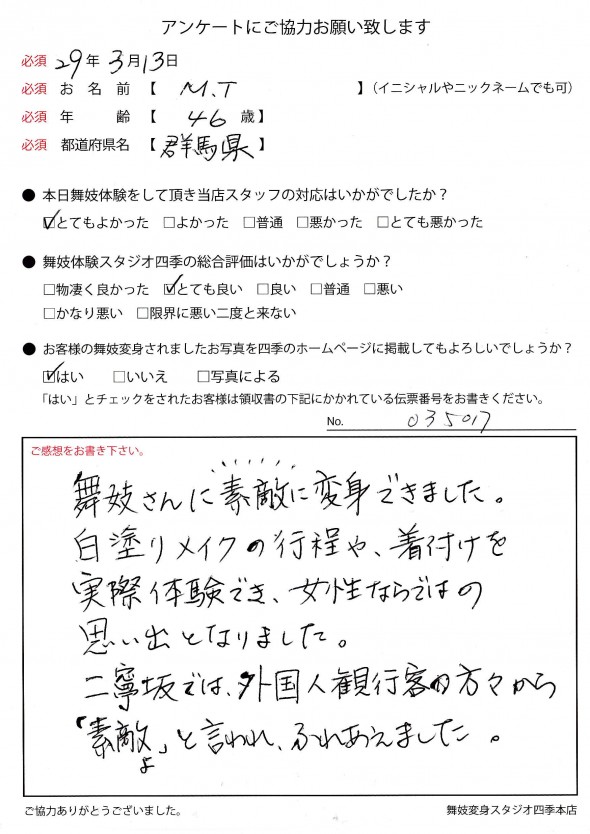 アンケートにご協力お願い致します
必須 29年 3月13日
必須 お名前【 M.T 】（イニシャルやニックネームでも可）
必須 年齢【 46 歳】
必須 都道府県名【 群馬県 】
● 本日舞妓体験をして頂き当店スタッフの対応はいかがでしたか？
☑とてもよかった □よかった □普通 □悪かった □とても悪かった
● 舞妓体験スタジオ四季の総合評価はいかがでしょうか？
□物凄く良かった ☑とても良い □良い □普通 □悪い
□かなり悪い □限界に悪い二度と来ない
● お客様の舞妓変身されましたお写真を四季のホームページに掲載してもよろしいでしょうか？
☑はい □いいえ □写真による
「はい」とチェックをされたお客様は領収書の下記にかかれている伝票番号をお書きください。
No. 035017
ご感想をお書き下さい。
舞妓さんに素敵に変身できました。
白塗りメイクの行程や、着付けを
実際体験でき、女性ならではの
思い出となりました。
二寧坂では、外国人観行客の方々から
「素敵よ」と言われ、ふれあえました。
ご協力ありがとうございました。
舞妓変身スタジオ四季本店